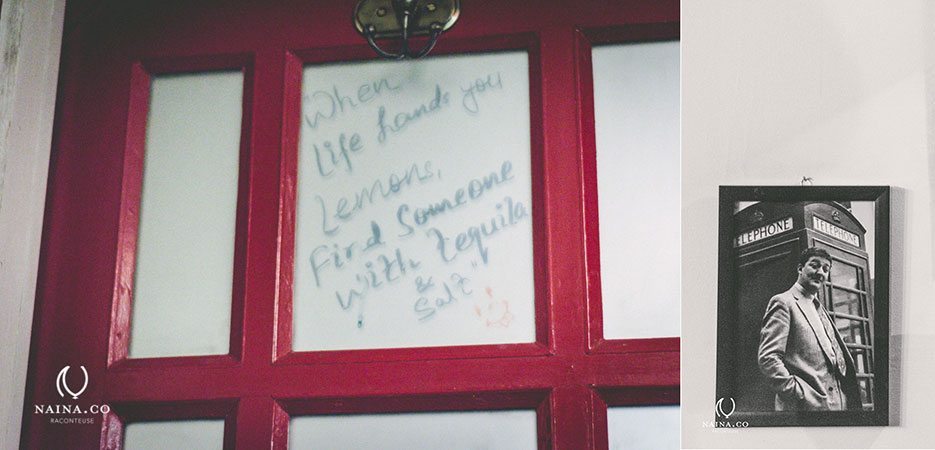 When
Life hands you
Lemons,
Find Someone
with tequila
&
Salt"
NAINA.CO
RACONTEUSE
TELEPHONE
TELEPHONE
NAINA.CO